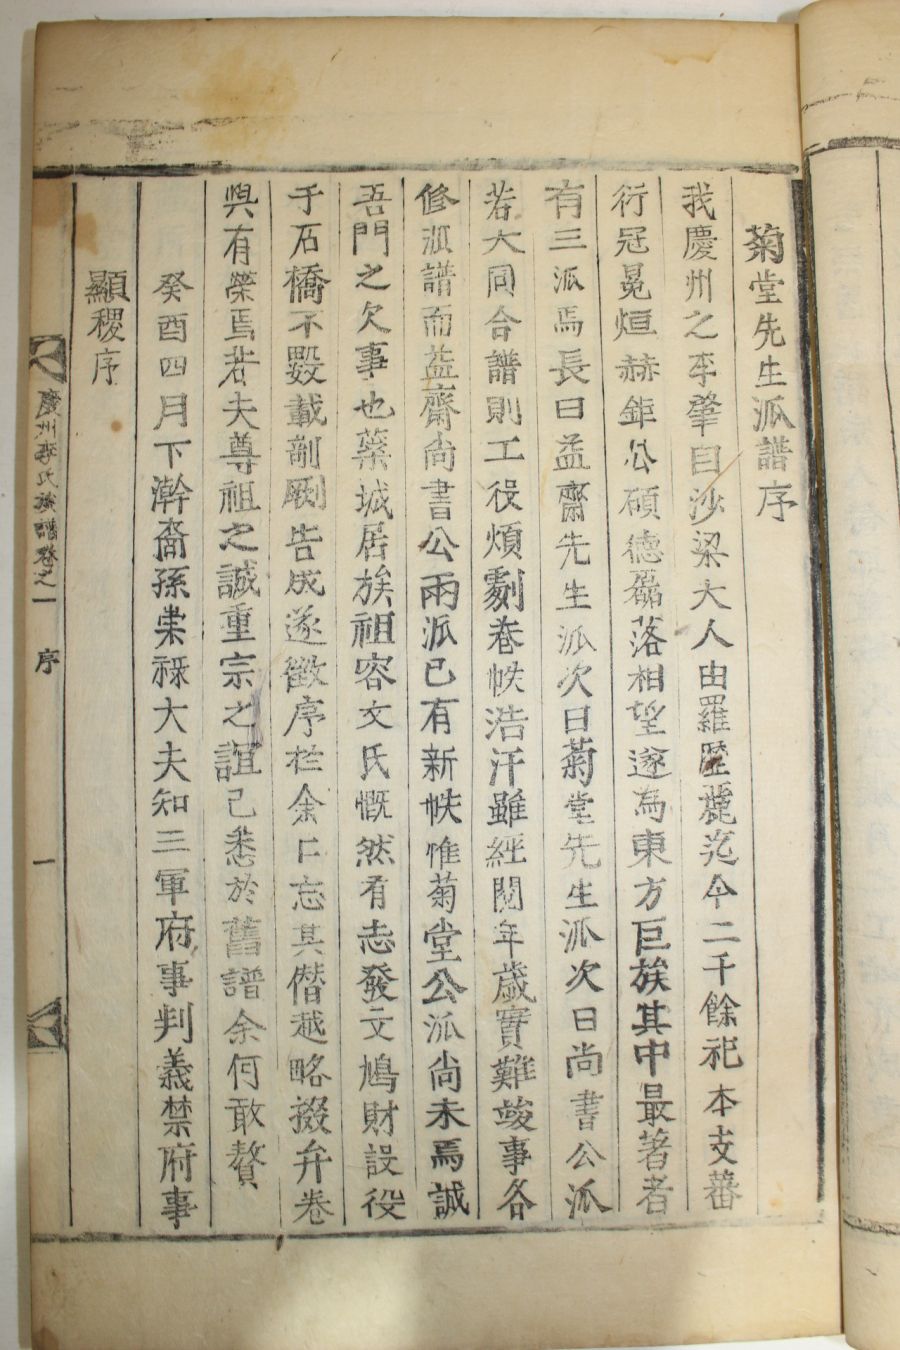 菊堂先生派譜序
我慶州之李肇自沙梁大人由羅歷麗迄今二千餘祀本支蕃
衍冠冕烜赫鉅公碩德磊落相望遂為東方巨族其中最著者
有三派焉長曰益齋先生派次曰菊堂先生派次曰尚書公派
若大同合譜則工役煩劇卷帙浩汗雖經閱年歲實難竣事各
修派譜而益齋尚書公兩派已有新帙惟菊堂公派尚未焉誠
吾門之欠事也藥城居族祖容文氏慨然有志發文鳩財設役
于石橋不數載剞劂告成遂徵序於余余忘其僭越略掇弁卷
與有榮焉若夫尊祖之誠重宗之誼已悉於舊譜余何敢贅
癸酉四月下澣裔孫崇祿大夫知三軍府事判義禁府事
顯稷序
慶州李氏族譜卷之一 序 一